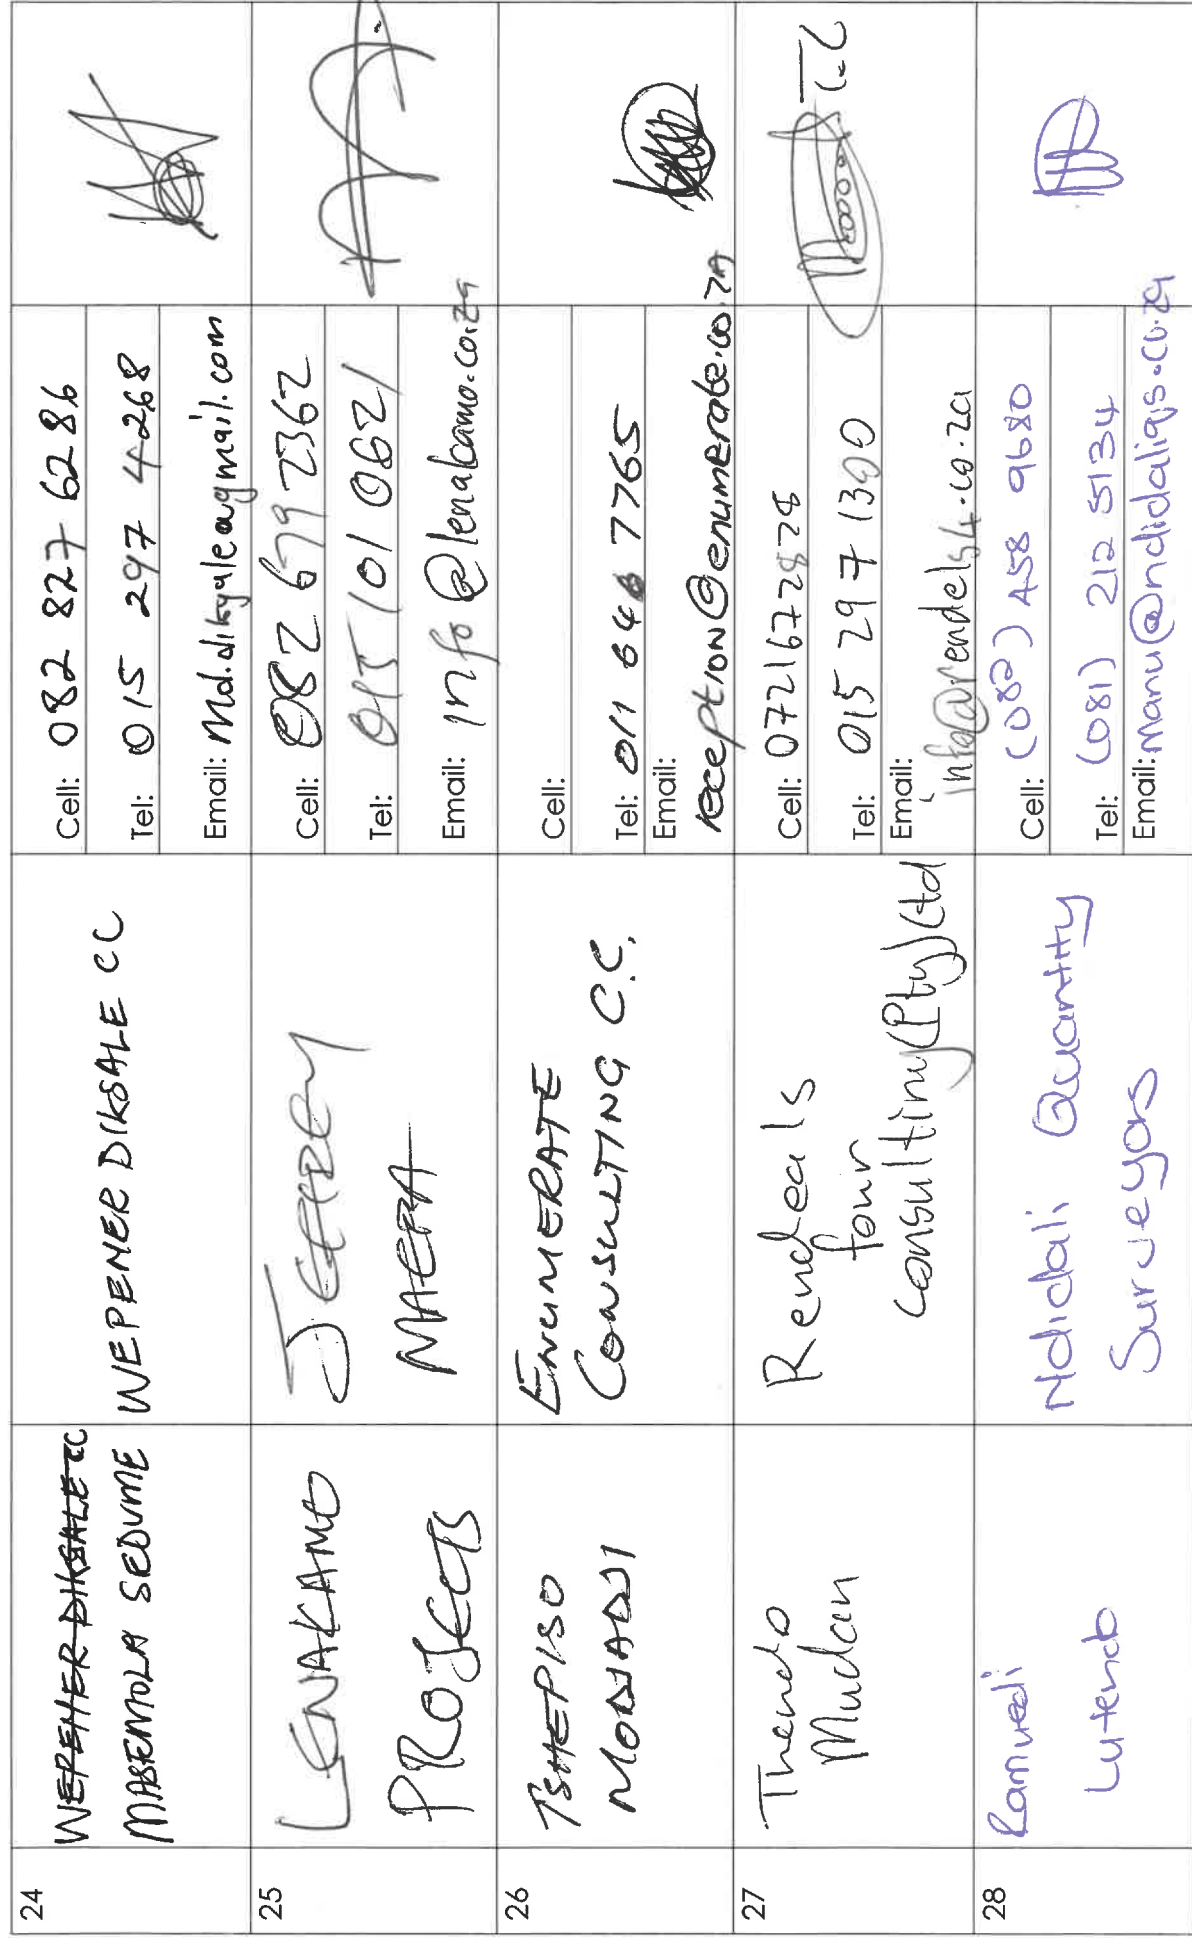 24
WEPENER DIKGALE CC
MASEMOLA SEDUME
WEPENER DIKGALE CC
Cell: 082 827 6286
Tel: 015 297 4268
Email: Md.dikgale@gmail.com
25
LENAKAMO
PROJECTS
JEFFREY
MAEPA
Cell: 082 679 2362
Tel: 015 101 0621
Email: info@lenakamo.co.za
26
TSHEPISO
MODJADJI
ENUMERATE
CONSULTING C.C.
Cell:
Tel: 011 646 7765
Email:
reception@enumerate.co.za
27
Thendo
Mudau
Rendeals
four
consulting (Pty) Ltd
Cell: 0721672828
Tel: 015 297 1300
Email:
info@rendels4.co.za
28
Ramuedi
Lutendo
Ndidali Quantity
Surveyors
Cell: (082) 458 9680
Tel: (081) 212 5134
Email: manu@ndidaliqs.co.za